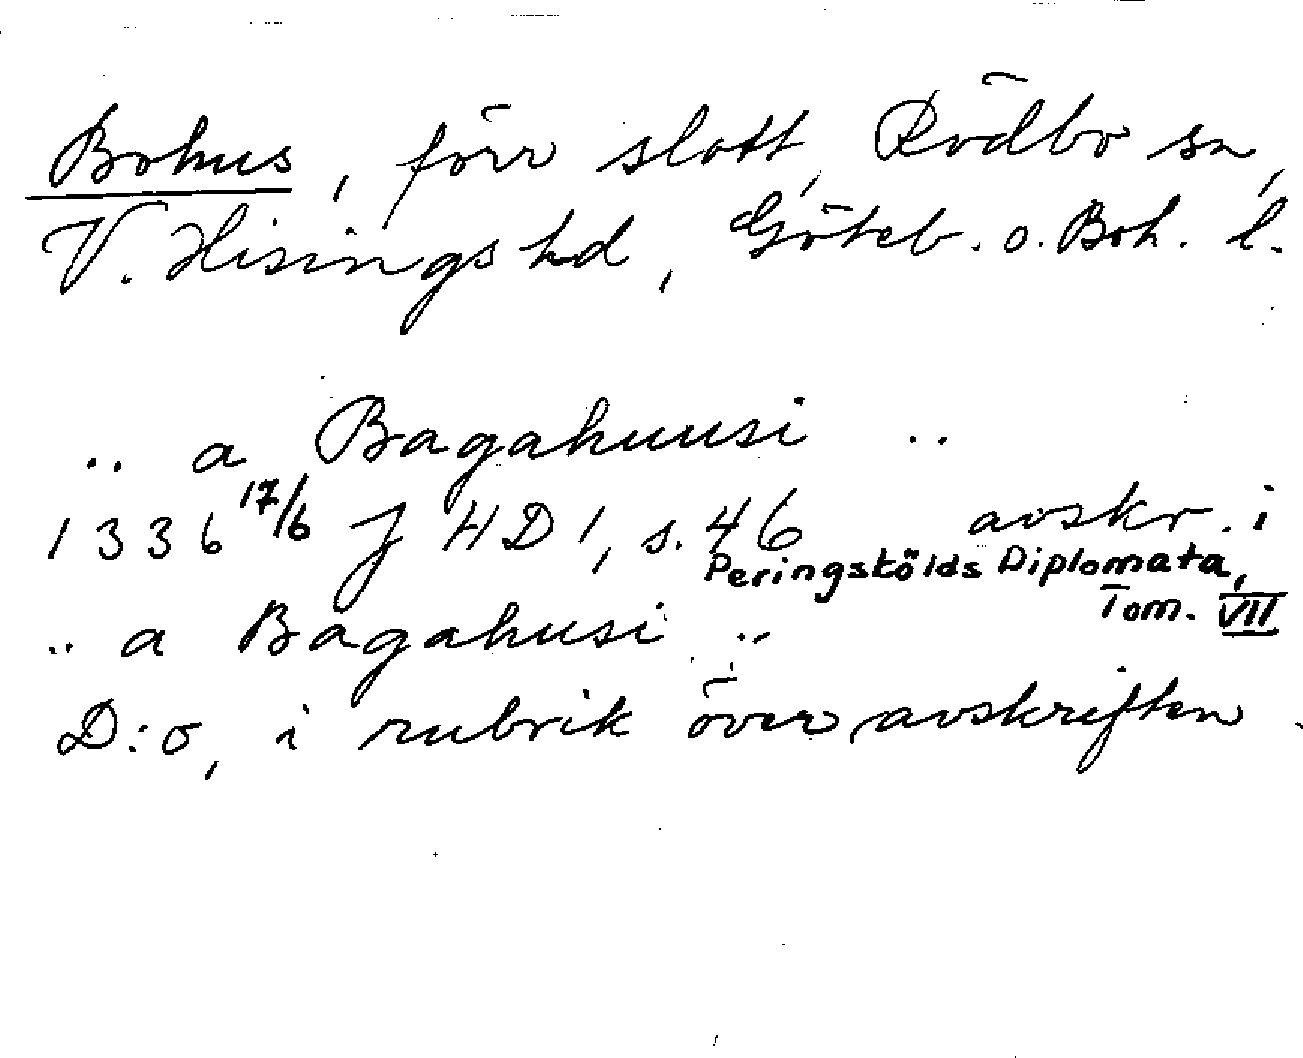 Bohus, förr slott, Rödbo sn,
V. Hisings hd, Göteb. o. Boh. l.
.. a Bagahuusi ..
1336 17/6 J HD 1, s. 46 avskr. i
Peringskölds Diplomata,
Tom. VII
.. a Bagahusi ..
D:o, i rubrik över avskriften.